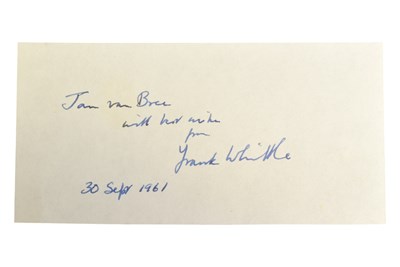 Jan van Bree
with best wishes
from
Frank Whittle
30 Sept 1961